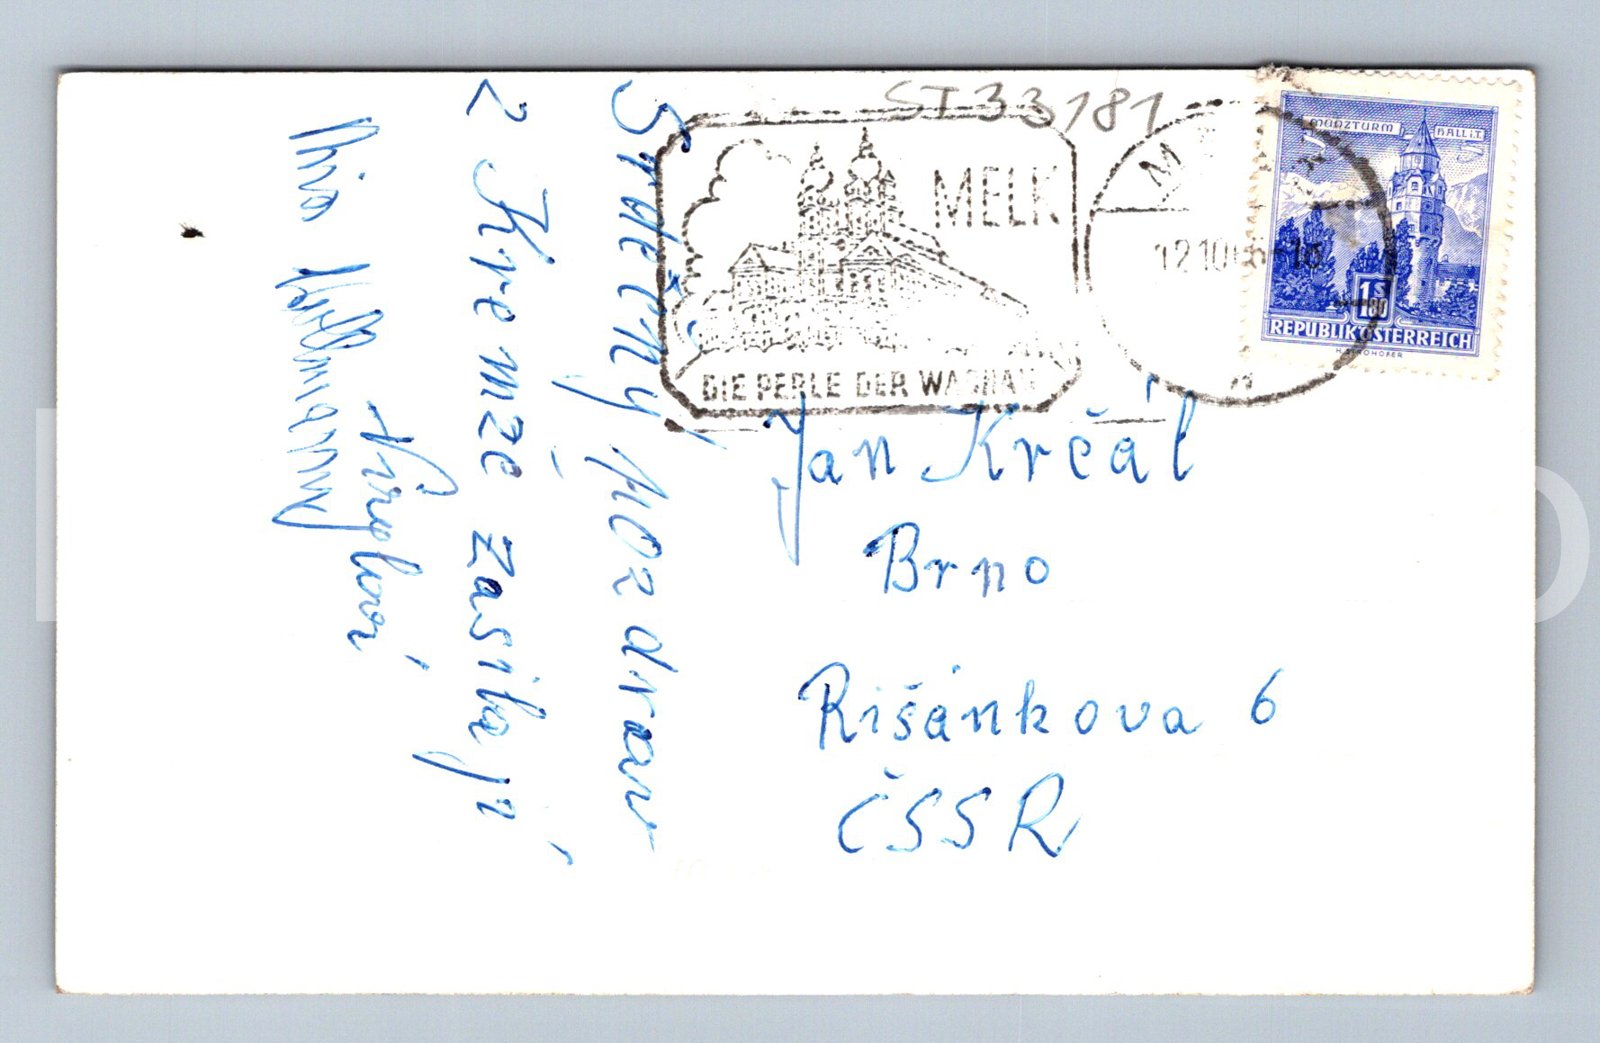 ST 33181
MELK
DIE PERLE DER WACHAU
12.10
MÜNZTURM HALL i.T.
1S 80
REPUBLIK ÖSTERREICH
Srdečný pozdrav
z Kremže zasílají
Jan Krčál
Brno
Rišánkova 6
ČSSR